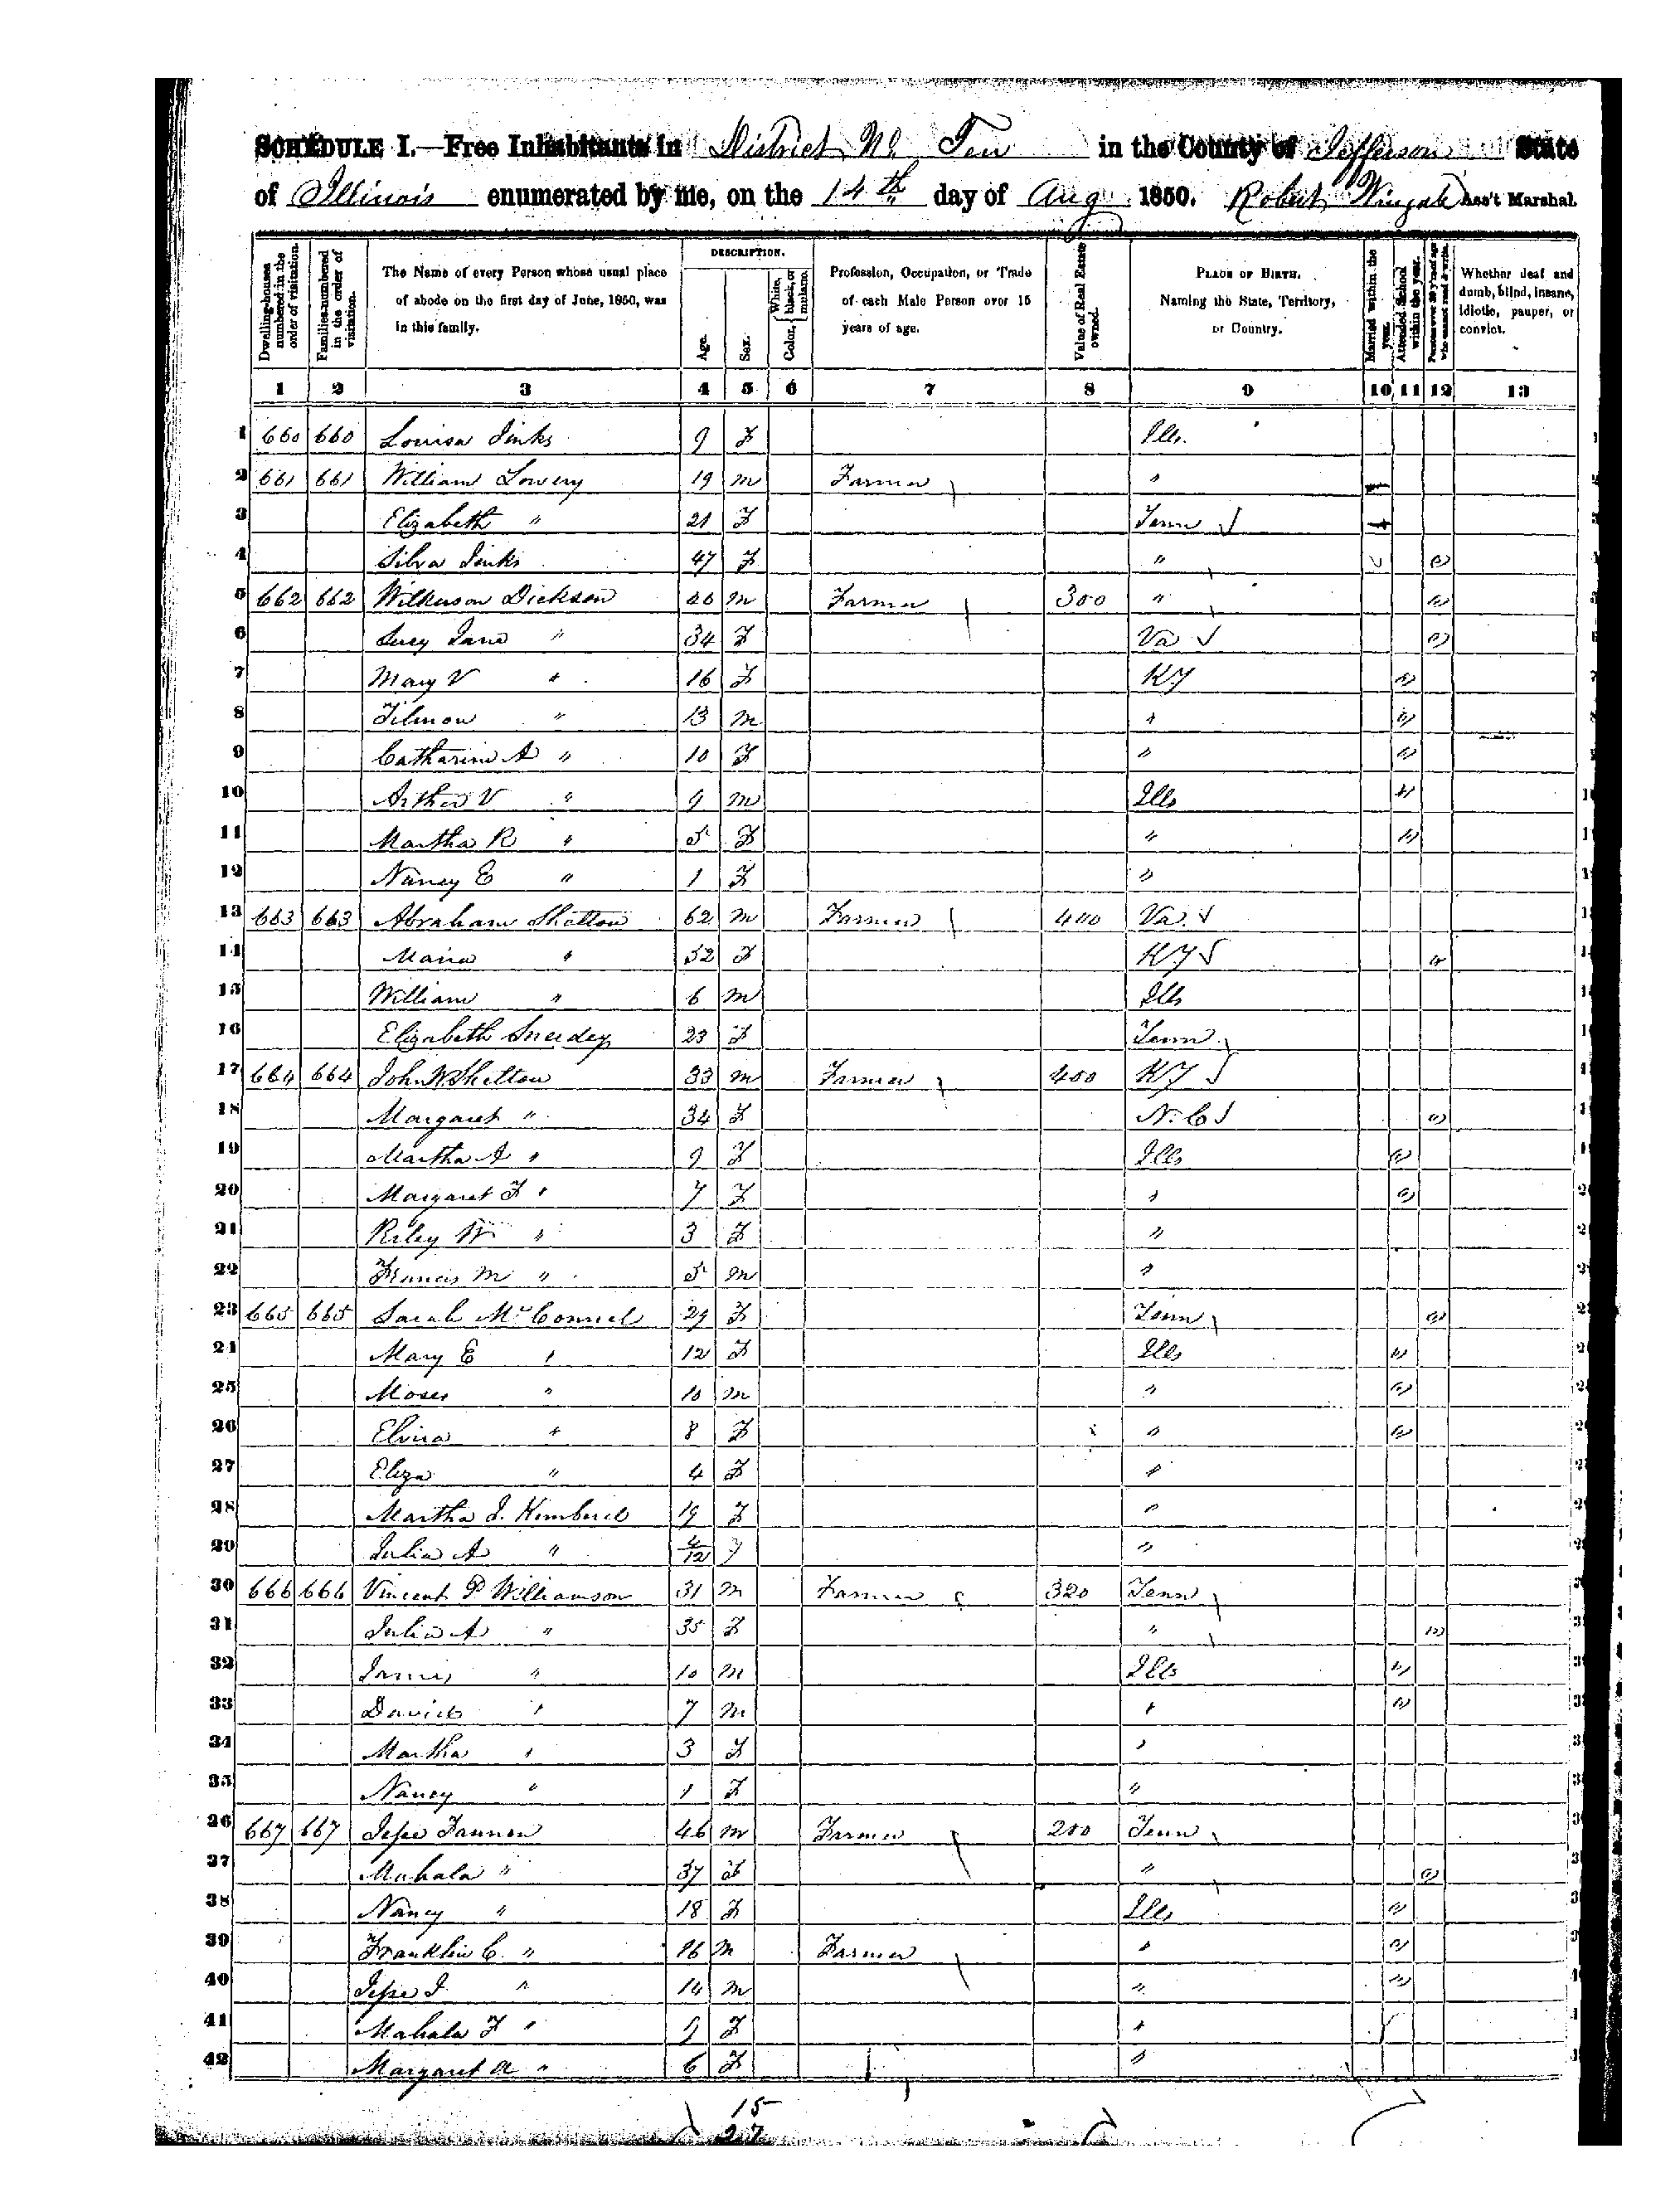 SCHEDULE I.—Free Inhabitants in District No. Ten in the County of Jefferson State
of Illinois enumerated by me, on the 14th day of Aug 1850. Robert Wingate Ass't Marshal.
Dwelling-houses numbered in the order of visitation.
Families numbered in the order of visitation.
The Name of every Person whose usual place of abode on the first day of June, 1850, was in this family.
DESCRIPTION.
Age.
Sex.
Color, White, black, or mulatto.
Profession, Occupation, or Trade of each Male Person over 15 years of age.
Value of Real Estate owned.
PLACE OF BIRTH. Naming the State, Territory, or Country.
Married within the year.
Attended School within the year.
Persons over 20 y'rs of age who cannot read & write.
Whether deaf and dumb, blind, insane, idiotic, pauper, or convict.
1 2 3 4 5 6 7 8 9 10 11 12 13
1 660 660 Louisa Jinks 9 F Ills.
2 661 661 William Lowery 19 m Farmer "
3 Elizabeth " 21 F Tenn
4 Silva Jinks 47 F "
5 662 662 Wilkerson Dickson 46 m Farmer 300 "
6 Lucy Jane " 34 F Va
7 Mary V " 16 F KY
8 Tilmon " 13 m "
9 Catharine A " 10 F "
10 Arther V " 9 m Ills
11 Martha R " 5 F "
12 Nancy E " 1 F "
13 663 663 Abraham Shelton 62 m Farmer 400 Va.
14 Maria " 52 F KY
15 William " 6 m Ills
16 Elizabeth 23 F Tenn
17 664 664 John W Shelton 33 m Farmer 400 KY
18 Margaret " 34 F N. C
19 Martha A " 9 F Ills
20 Margaret F " 7 F "
21 Riley W " 3 F "
22 Francis M " 5 m "
23 665 665 Sarah McConnel 29 F Tenn
24 Mary E " 12 F Ills
25 Moses " 10 m "
26 Elvira " 8 F "
27 Eliza " 4 F "
28 Martha J. 19 F "
29 Julia A " 4/12 F "
30 666 666 Vincent P Williamson 31 m Farmer 320 Tenn
31 Julia A " 35 F "
32 James " 10 m Ills
33 David " 7 m "
34 Martha " 3 F "
35 Nancy " 1 F "
36 667 667 Jesse Fannon 46 m Farmer 200 Tenn
37 Mahala " 37 F "
38 Nancy " 18 F Ills
39 Franklin C. " 16 m Farmer "
40 Jesse J. " 14 m "
41 Mahala F " 9 F "
42 Margaret A " 6 F "
15
27